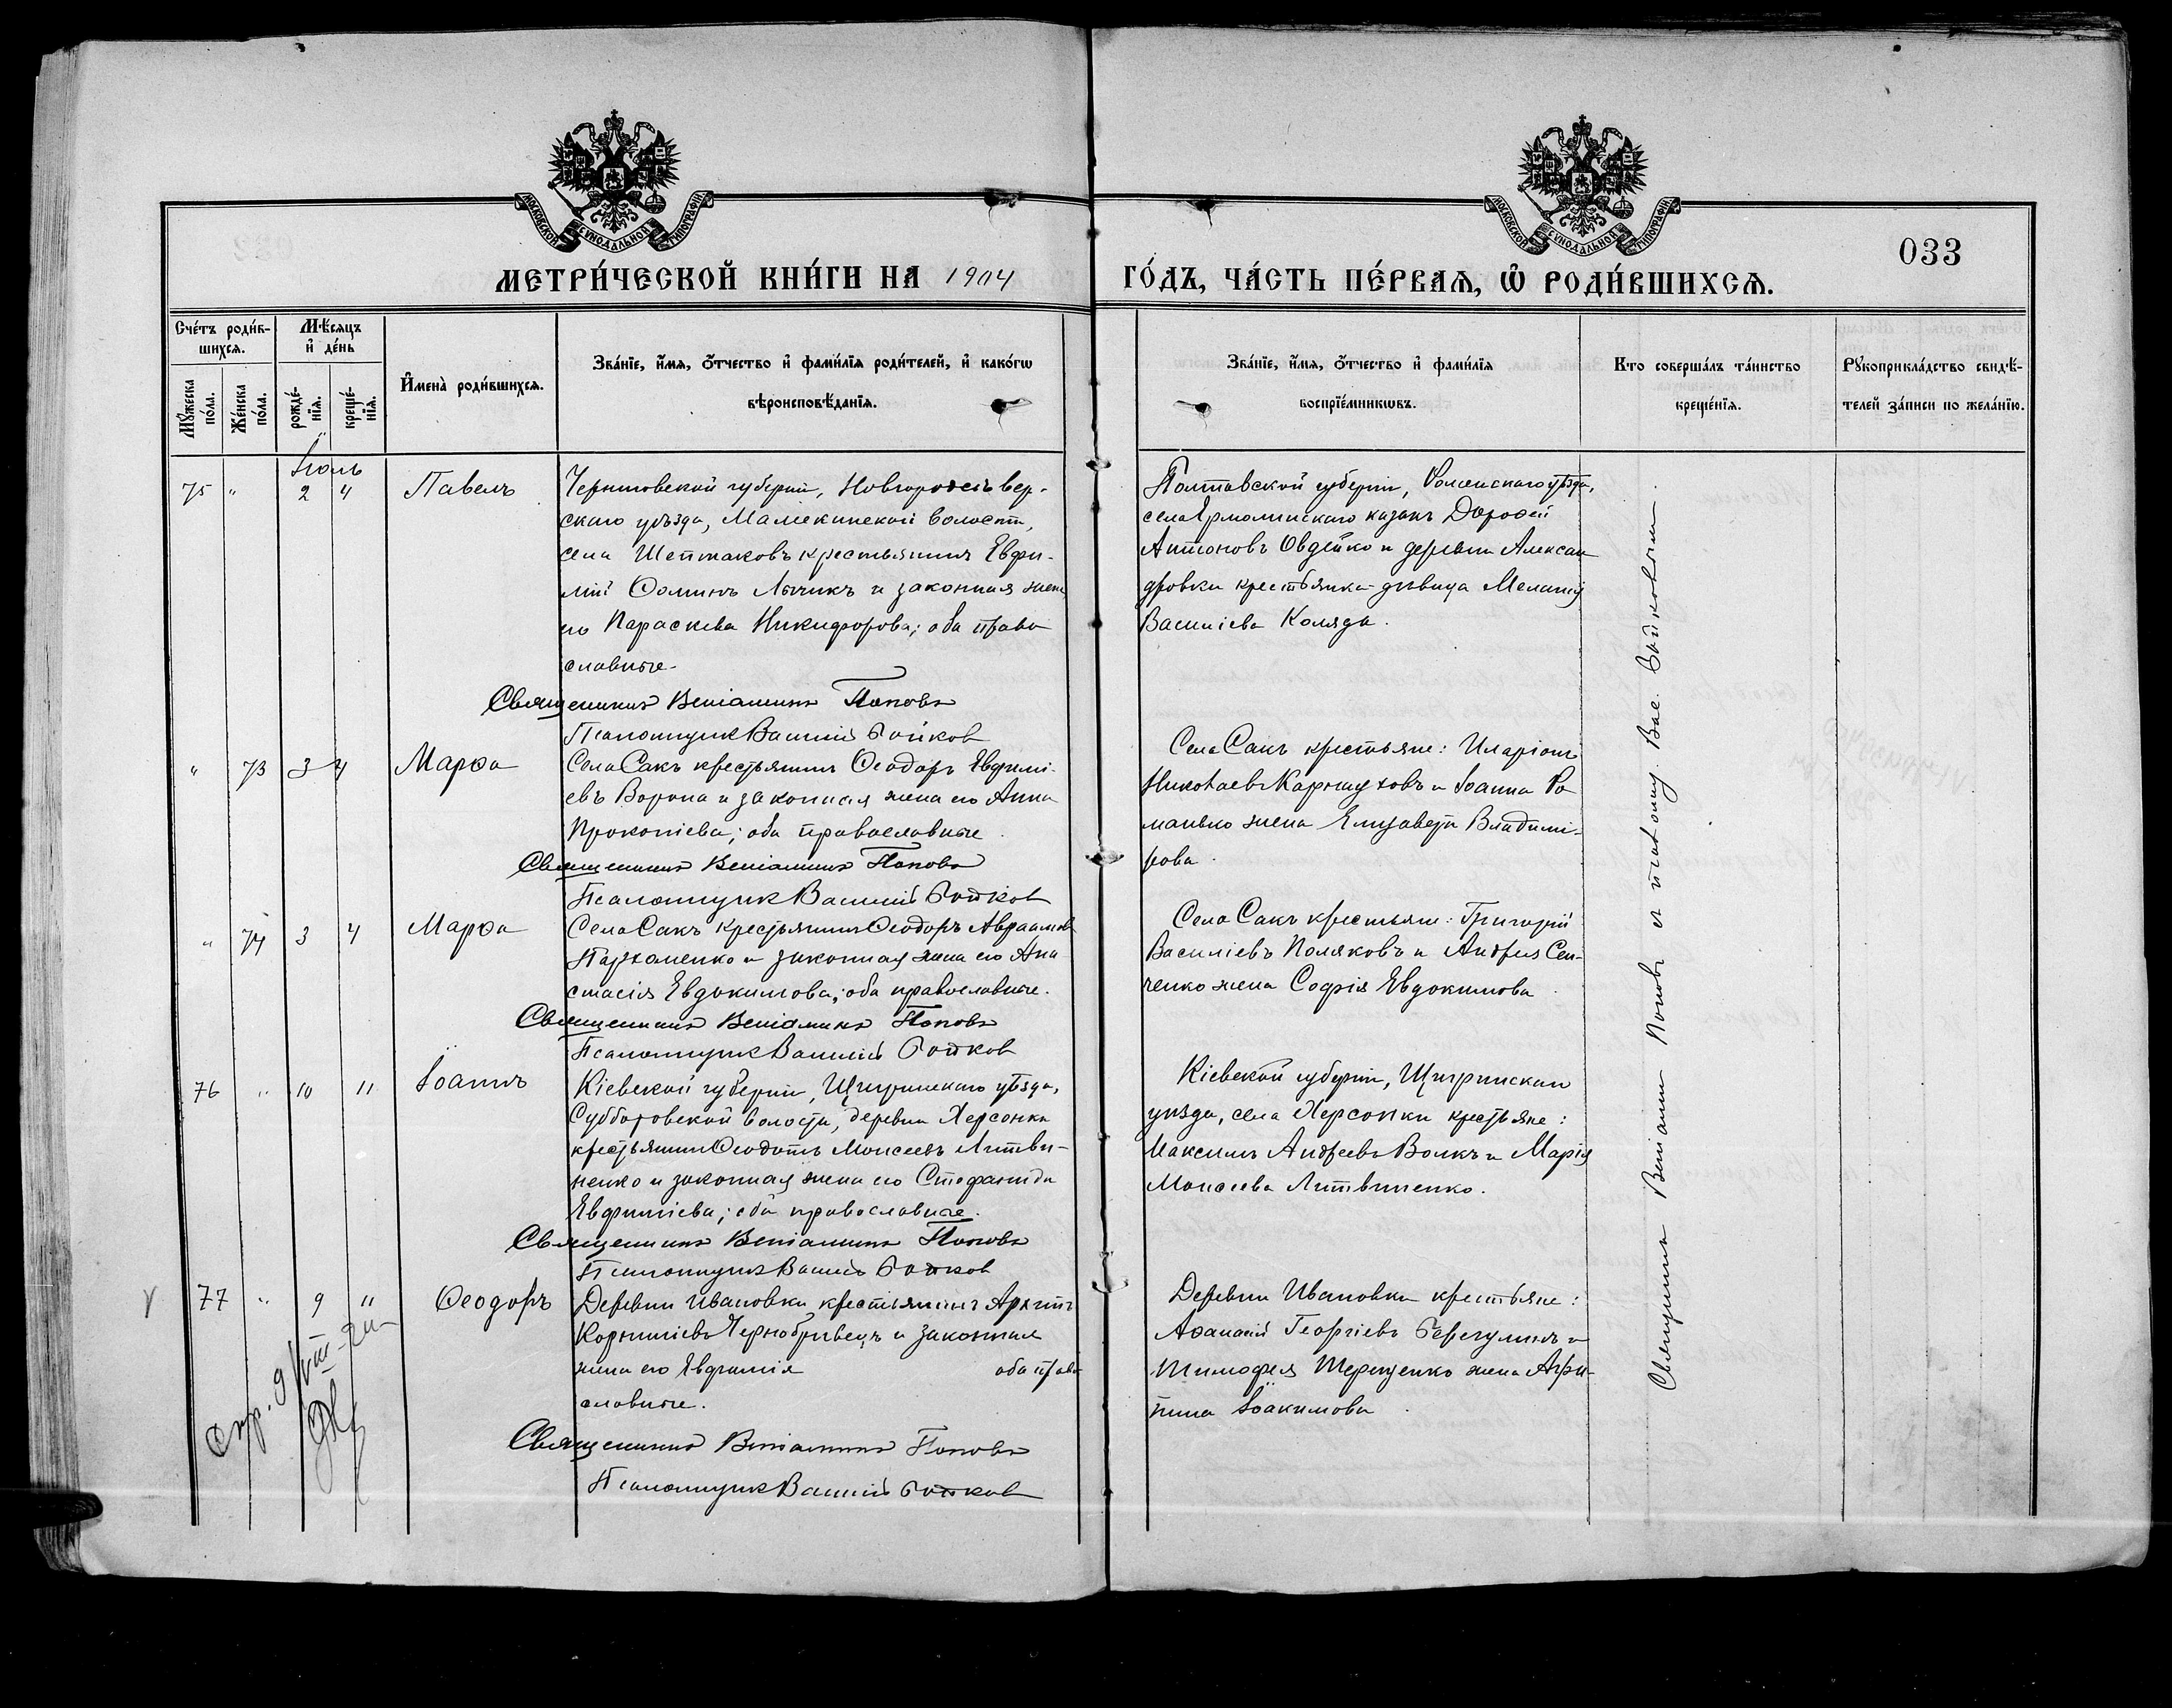 МОСКОВСКОЙ СѴНОДАЛЬНОЙ ТИПОГРАФІИ
МОСКОВСКОЙ СѴНОДАЛЬНОЙ ТИПОГРАФІИ
033
МЕТРИ́ЧЕСКОЙ КНИ́ГИ НА 1904 ГО́ДЪ, ЧА́СТЬ ПЕ́РВАѦ, Ѡ҆ РОДИ́ВШИХСѦ.
Сче́тъ роди́в-
шихсѧ.
Мѣ́сяцъ
и҆ де́нь
Мꙋ́жеска
по́ла.
Же́нска
по́ла.
рожде́-
нїѧ.
креще́-
нїѧ.
И҆мена̀ роди́вшихсѧ.
Зва́нїе, и҆́мѧ, ѻ҆́тчество и҆ фами́лїѧ роди́телей, и҆ како́гѡ
вѣроисповѣ́данїѧ.
Зва́нїе, и҆́мѧ, ѻ҆́тчество и҆ фами́лїѧ
воспрїе́мникѡвъ.
Кто соверша́лъ та́инство
креще́нїѧ.
Рꙋкоприкла́дство свидѣ́-
телей за́писи по жела́нїю.
Іюль
75 " 2 4 Павелъ
Черниговской губерніи, Новгородсѣвер-
скаго уѣзда, Мамекинской волости,
села Шептаковъ крестьянинъ Евфи-
мій Ѳоминъ Лычикъ и законная жена
его Параскева Никифорова; оба право
славные.
Священникъ Веніаминъ Поповъ
Псаломщикъ Василій Бойков
Полтавской губерніи, Роменскаго уѣзда,
села Ярмолинскаго казакъ Дороѳей
Антоновъ Овдейко и деревни Алексан
дровки крестьянка-дѣвица Меланія
Василіева Коляда.
" 73 3 4 Марѳа
Села Сакъ крестьянинъ Ѳеодоръ Евфимі-
евъ Ворона и законная жена его Анна
Прокопіева; оба православные.
Священникъ Веніаминъ Поповъ
Псаломщикъ Василій Бойков
Села Сакъ крестьяне: Иларіонъ
Николаевъ Карнауховъ и Іоанна Ро
манько жена Елизавета Владимі-
рова.
" 74 3 4 Марѳа
Села Сакъ крестьянинъ Ѳеодоръ Авраамов
Пархоменко и законная жена его Ана
стасія Евдокимова; оба православные.
Священникъ Веніаминъ Поповъ
Псаломщикъ Василій Бойков
Села Сакъ крестьяне: Григорій
Василіевъ Поляковъ и Андрея Сен-
ченко жена Софія Евдокимова.
76 " 10 11 Іоаннъ
Кіевской губерніи, Щигринскаго уѣзда,
Субботовской волости, деревни Херсонка
крестьянинъ Ѳеодотъ Моисеевъ Литви-
ненко и законная жена его Стефанида
Евфиміева; оба православные.
Священникъ Веніаминъ Поповъ
Псаломщикъ Василій Бойков
Кіевской губерніи, Щигринскаго
уѣзда, села Херсонки крестьяне:
Максимъ Андреевъ Волкъ и Марія
Моисеева Литвиненко.
77 " 9 11 Ѳеодоръ
Деревни Ивановки крестьянинъ Архипъ
Корниліевъ Чернобривецъ и законная
жена его Евфимія оба право
славные.
Священникъ Веніаминъ Поповъ
Псаломщикъ Василій Бойков
Деревни Ивановки крестьяне:
Аѳанасій Георгіевъ Берегулинъ и
Тимоѳея Терещенко жена Агри-
пина Іоакимова.
Священникъ Веніаминъ Поповъ съ псаломщ. Вас. Бойковымъ.